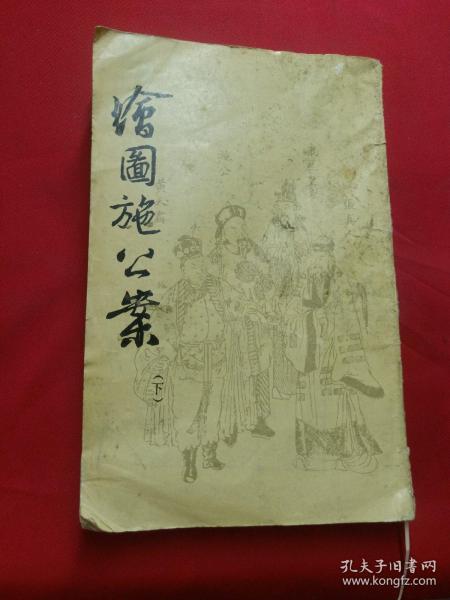 繪圖施公案
（下）
施公
黃天霸
孔夫子旧书网
www.kongfz.com